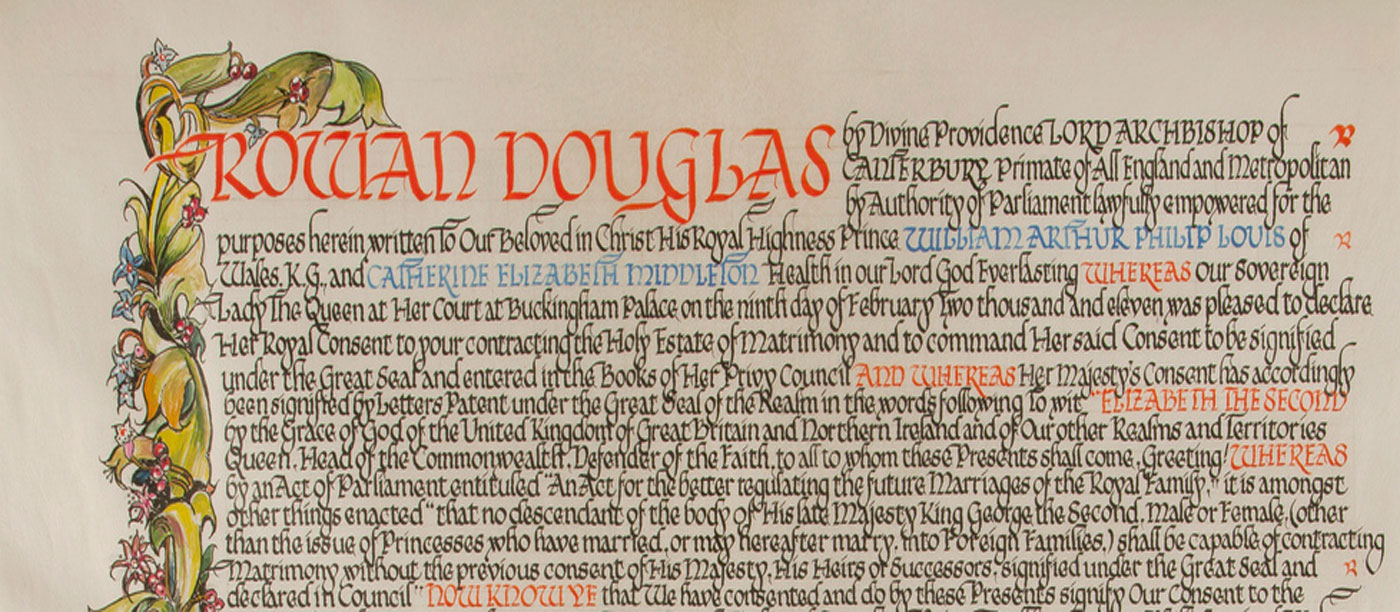 ROWAN DOUGLAS by Divine Providence LORD ARCHBISHOP of
CANTERBURY, Primate of All England and Metropolitan
by Authority of Parliament lawfully empowered for the
purposes herein written To Our Beloved in Christ His Royal Highness Prince WILLIAM ARTHUR PHILIP LOUIS of
Wales, K.G., and CATHERINE ELIZABETH MIDDLETON Health in our Lord God Everlasting WHEREAS Our Sovereign
Lady The Queen at Her Court at Buckingham Palace on the ninth day of February Two thousand and eleven was pleased to declare
Her Royal Consent to your contracting the Holy Estate of Matrimony and to command Her said Consent to be signified
under the Great Seal and entered in the Books of Her Privy Council AND WHEREAS Her Majesty's Consent has accordingly
been signified by Letters Patent under the Great Seal of the Realm in the words following To wit "ELIZABETH THE SECOND
by the Grace of God of the United Kingdom of Great Britain and Northern Ireland and of Our other Realms and Territories
Queen, Head of the Commonwealth, Defender of the Faith, to all to whom these Presents shall come, Greeting! WHEREAS
by an Act of Parliament entituled "An Act for the better regulating the future Marriages of the Royal Family," it is amongst
other things enacted "that no descendant of the body of His late Majesty King George the Second, Male or Female, (other
than the issue of Princesses who have married, or may hereafter marry, into Foreign Families,) shall be capable of contracting
Matrimony without the previous consent of His Majesty, His Heirs or Successors, signified under the Great Seal and
declared in Council" NOW KNOW YE that We have consented and do by these Presents signify Our Consent to the